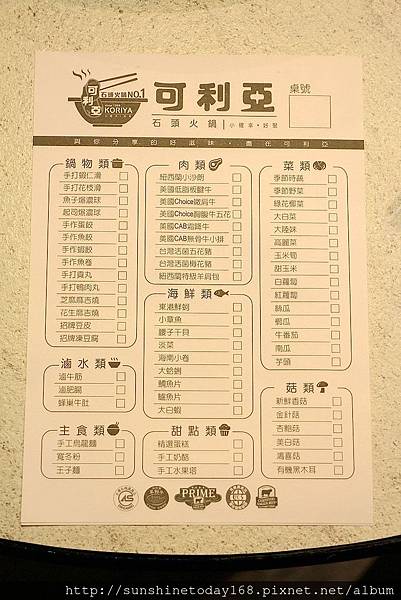 石頭火鍋NO.1
可利亞
KORIYA
可利亞
石頭火鍋 小確幸·好聚
桌號
與你分享的好滋味,盡在可利亞
鍋物類
手打蝦仁滑
手打花枝滑
魚子爆漿球
起司爆漿球
手作蛋餃
手作魚餃
手作蝦餃
手作魚卷
手打貢丸
手打鴨肉丸
芝麻麻吉燒
花生麻吉燒
招牌豆皮
招牌凍豆腐
滷水類
滷牛筋
滷肥腸
蜂巢牛肚
主食類
手工烏龍麵
寬冬粉
王子麵
肉類
紐西蘭小沙朗
美國低脂板腱牛
美國Choice嫩肩牛
美國Choice胸腹牛五花
美國CAB霜降牛
美國CAB無骨牛小排
台灣活菌五花豬
台灣活菌梅花豬
紐西蘭特級羊肩包
海鮮類
東港鮮蚵
小章魚
腰子干貝
淡菜
海南小卷
大蛤蜊
鯛魚片
鱸魚片
大白蝦
甜點類
精選蛋糕
手工奶酪
手工水果塔
菜類
季節時蔬
季節野菜
綠花椰菜
大白菜
大陸妹
高麗菜
玉米筍
甜玉米
白蘿蔔
紅蘿蔔
絲瓜
蜩瓜
牛番茄
南瓜
芋頭
菇類
新鮮香菇
金針菇
杏鮑菇
美白菇
鴻喜菇
有機黑木耳
PRIME
http://sunshinetoday168.pixnet.net/album